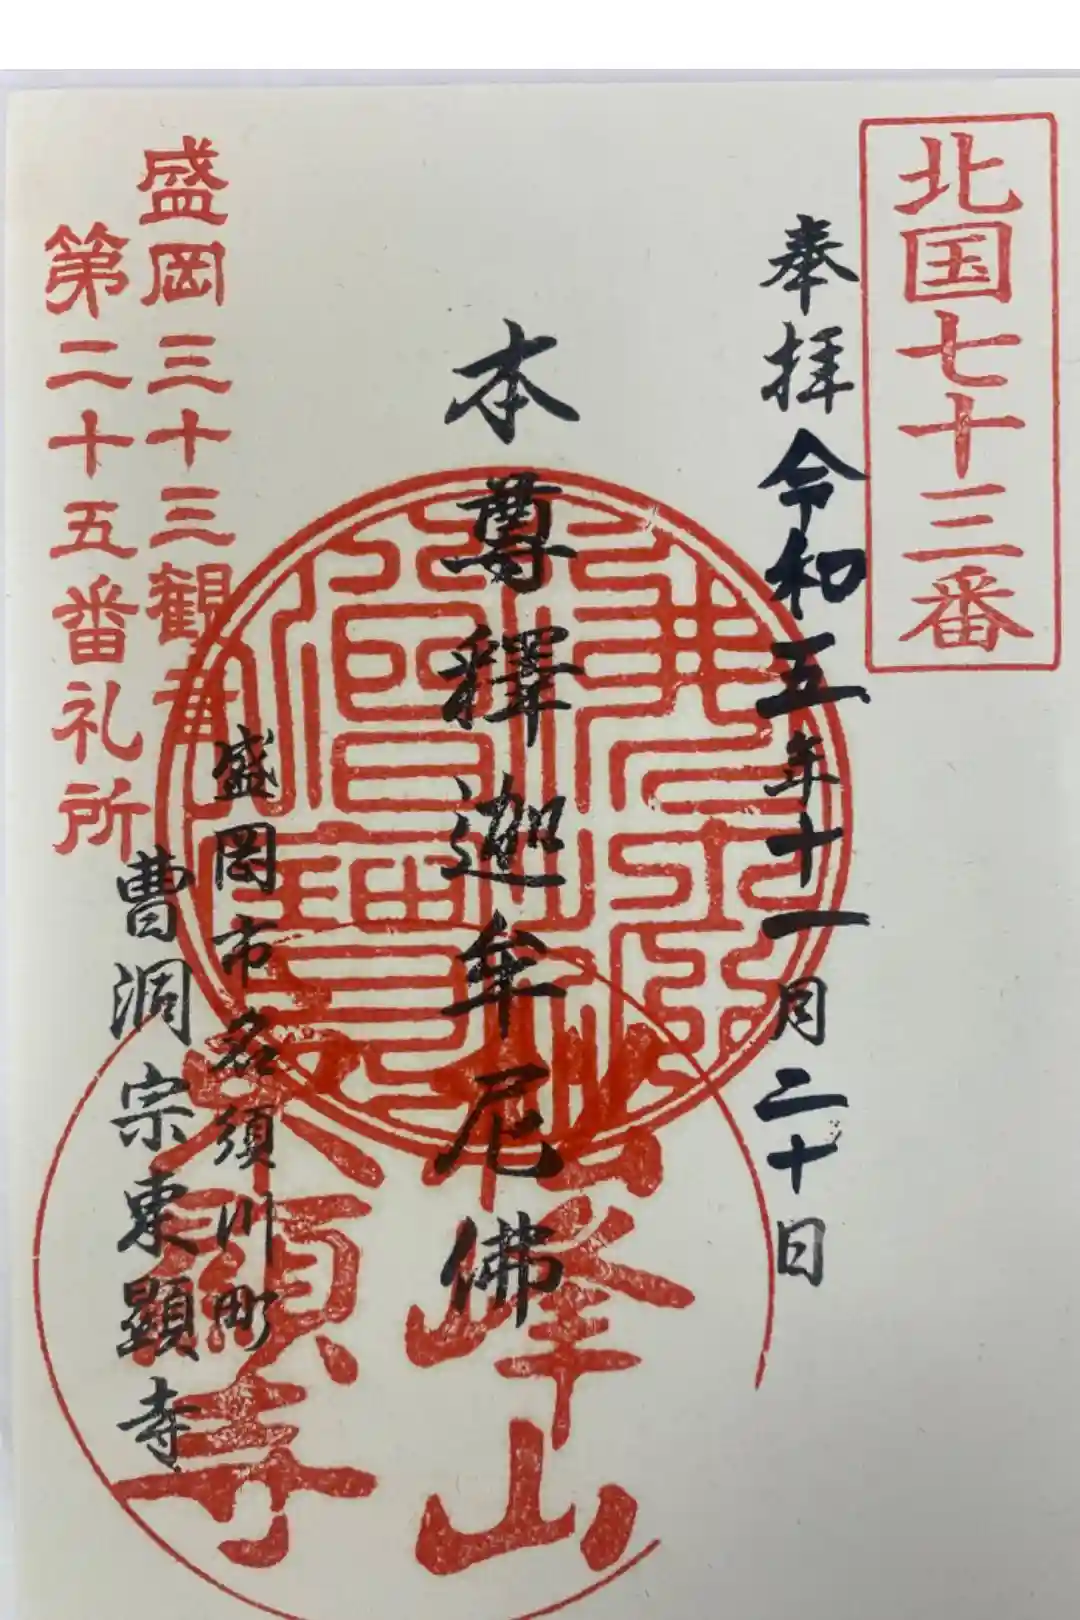 北国七十三番
奉拝 令和五年十一月二十日
本尊釋迦牟尼佛
盛岡三十三観音
第二十五番礼所
盛岡市名須川町
曹洞宗東顯寺
峰山
顕寺